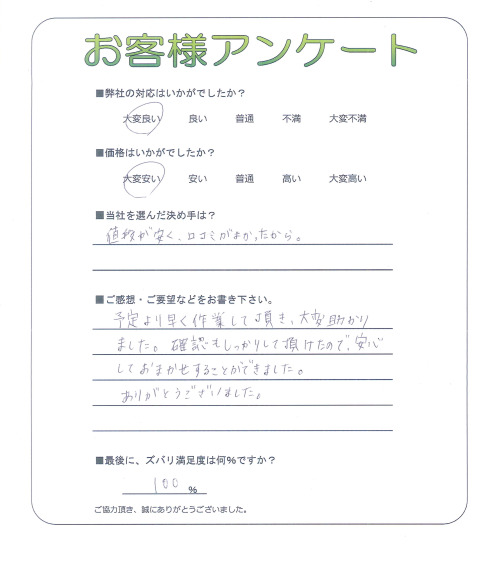 お客様アンケート
■弊社の対応はいかがでしたか？
大変良い 良い 普通 不満 大変不満
■価格はいかがでしたか？
大変安い 安い 普通 高い 大変高い
■当社を選んだ決め手は？
値段が安く、口コミがよかったから。
■ご感想・ご要望などをお書き下さい。
予定より早く作業して頂き、大変助かり
ました。確認もしっかりして頂けたので、安心
しておまかせすることができました。
ありがとうございました。
■最後に、ズバリ満足度は何％ですか？
100 ％
ご協力頂き、誠にありがとうございました。